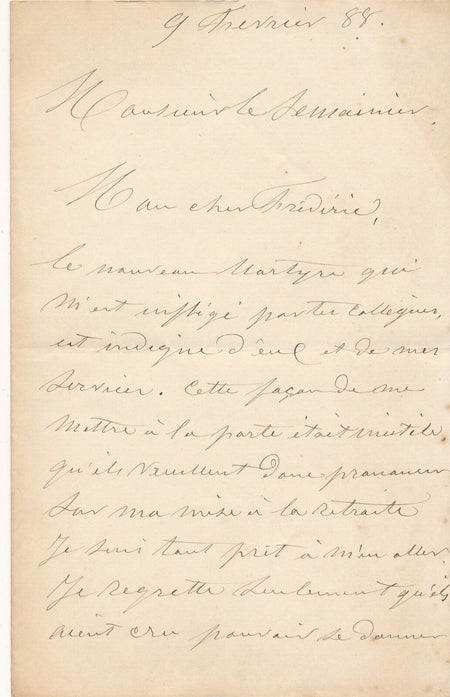 9 Fevrier 88.
Monsieur le Semainier.
Mon cher Frédéric,
le nouveau Martyre qui
m'est infligé par tes Collègues,
est indigne d'eux et de mes
services. Cette façon de me
mettre à la porte était inutile,
qu'ils veuillent donc prononcer
sur ma mise à la retraite
Je suis tout prêt à m'en aller.
Je regrette seulement qu'ils
aient cru pouvoir se donner